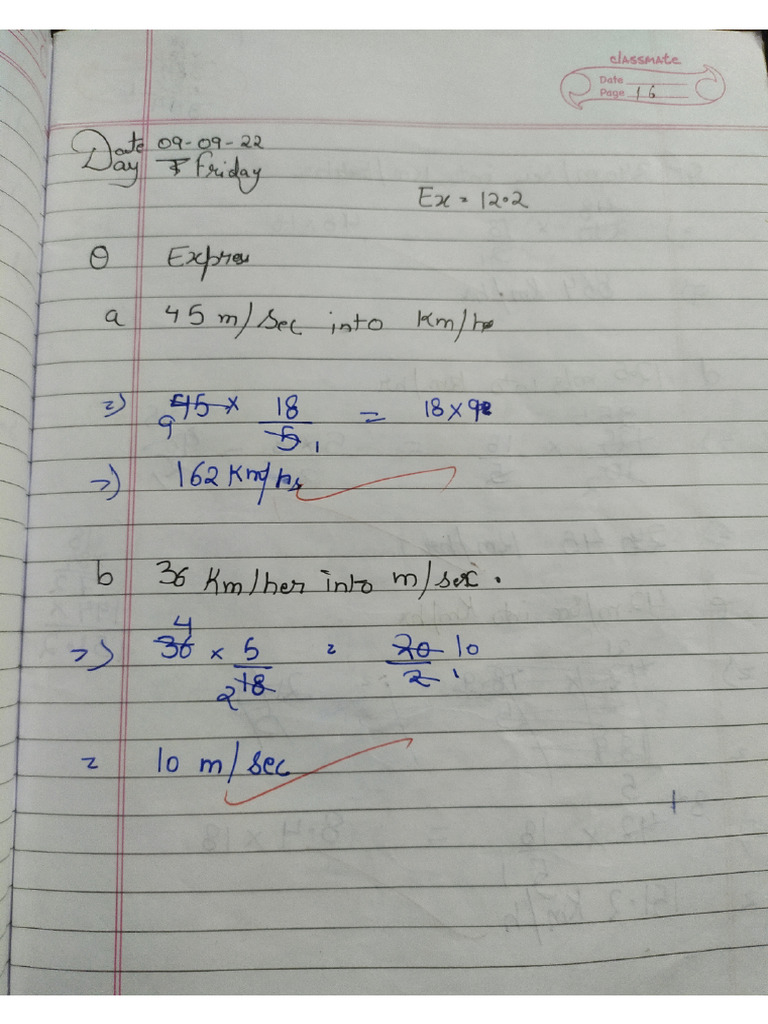 classmate
Date
Page 16
Date 09-09-22
Day Friday
Ex = 12.2
Q Express
a 45 m/sec into Km/hr
=) 45 x 18/5 = 18 x 9
9 1
=) 162 Km/hr
b 36 Km/her into m/sec.
4
=) 36 x 5/18 = 20/2 10
2 1
= 10 m/sec